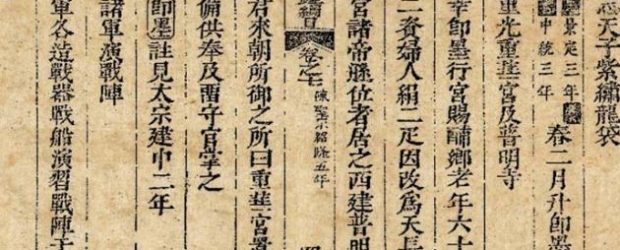 天子紫繡龍袋
景定三年
中統三年
春二月升即墨
重光重華宮及普明寺
幸即墨行宮賜酺鄉老年六十
二資婦人絹二疋因改爲天長
宮諸帝遜位者居之西建普明
卷之五
陳聖宗紹隆五年
君來朝所御之所曰重華宮置
備供奉及畱守官掌之
即墨註見太宗建中二年
諸軍演戰陣
軍各造戰器戰船演習戰陣于